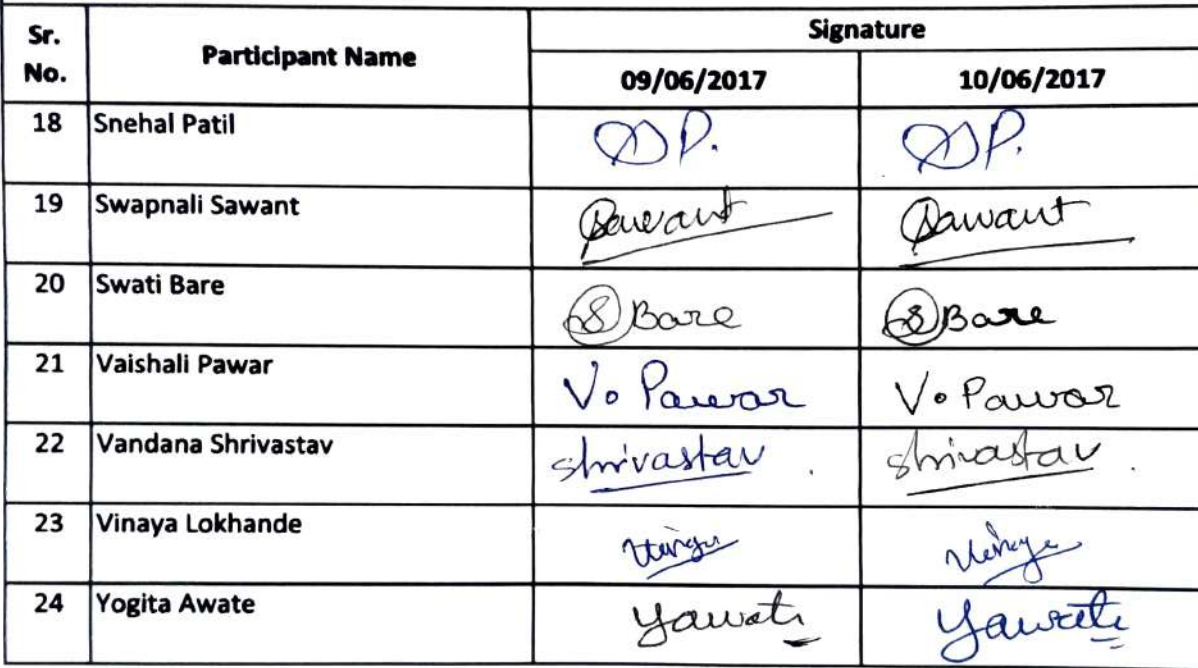 Sr. No. Participant Name Signature
09/06/2017 10/06/2017
18 Snehal Patil SP. SP.
19 Swapnali Sawant Sawant Sawant
20 Swati Bare S Bare S Bare
21 Vaishali Pawar V. Pawar V. Pawar
22 Vandana Shrivastav Shrivastav Shrivastav
23 Vinaya Lokhande Vinaya Vinaya
24 Yogita Awate Yawate Yawate